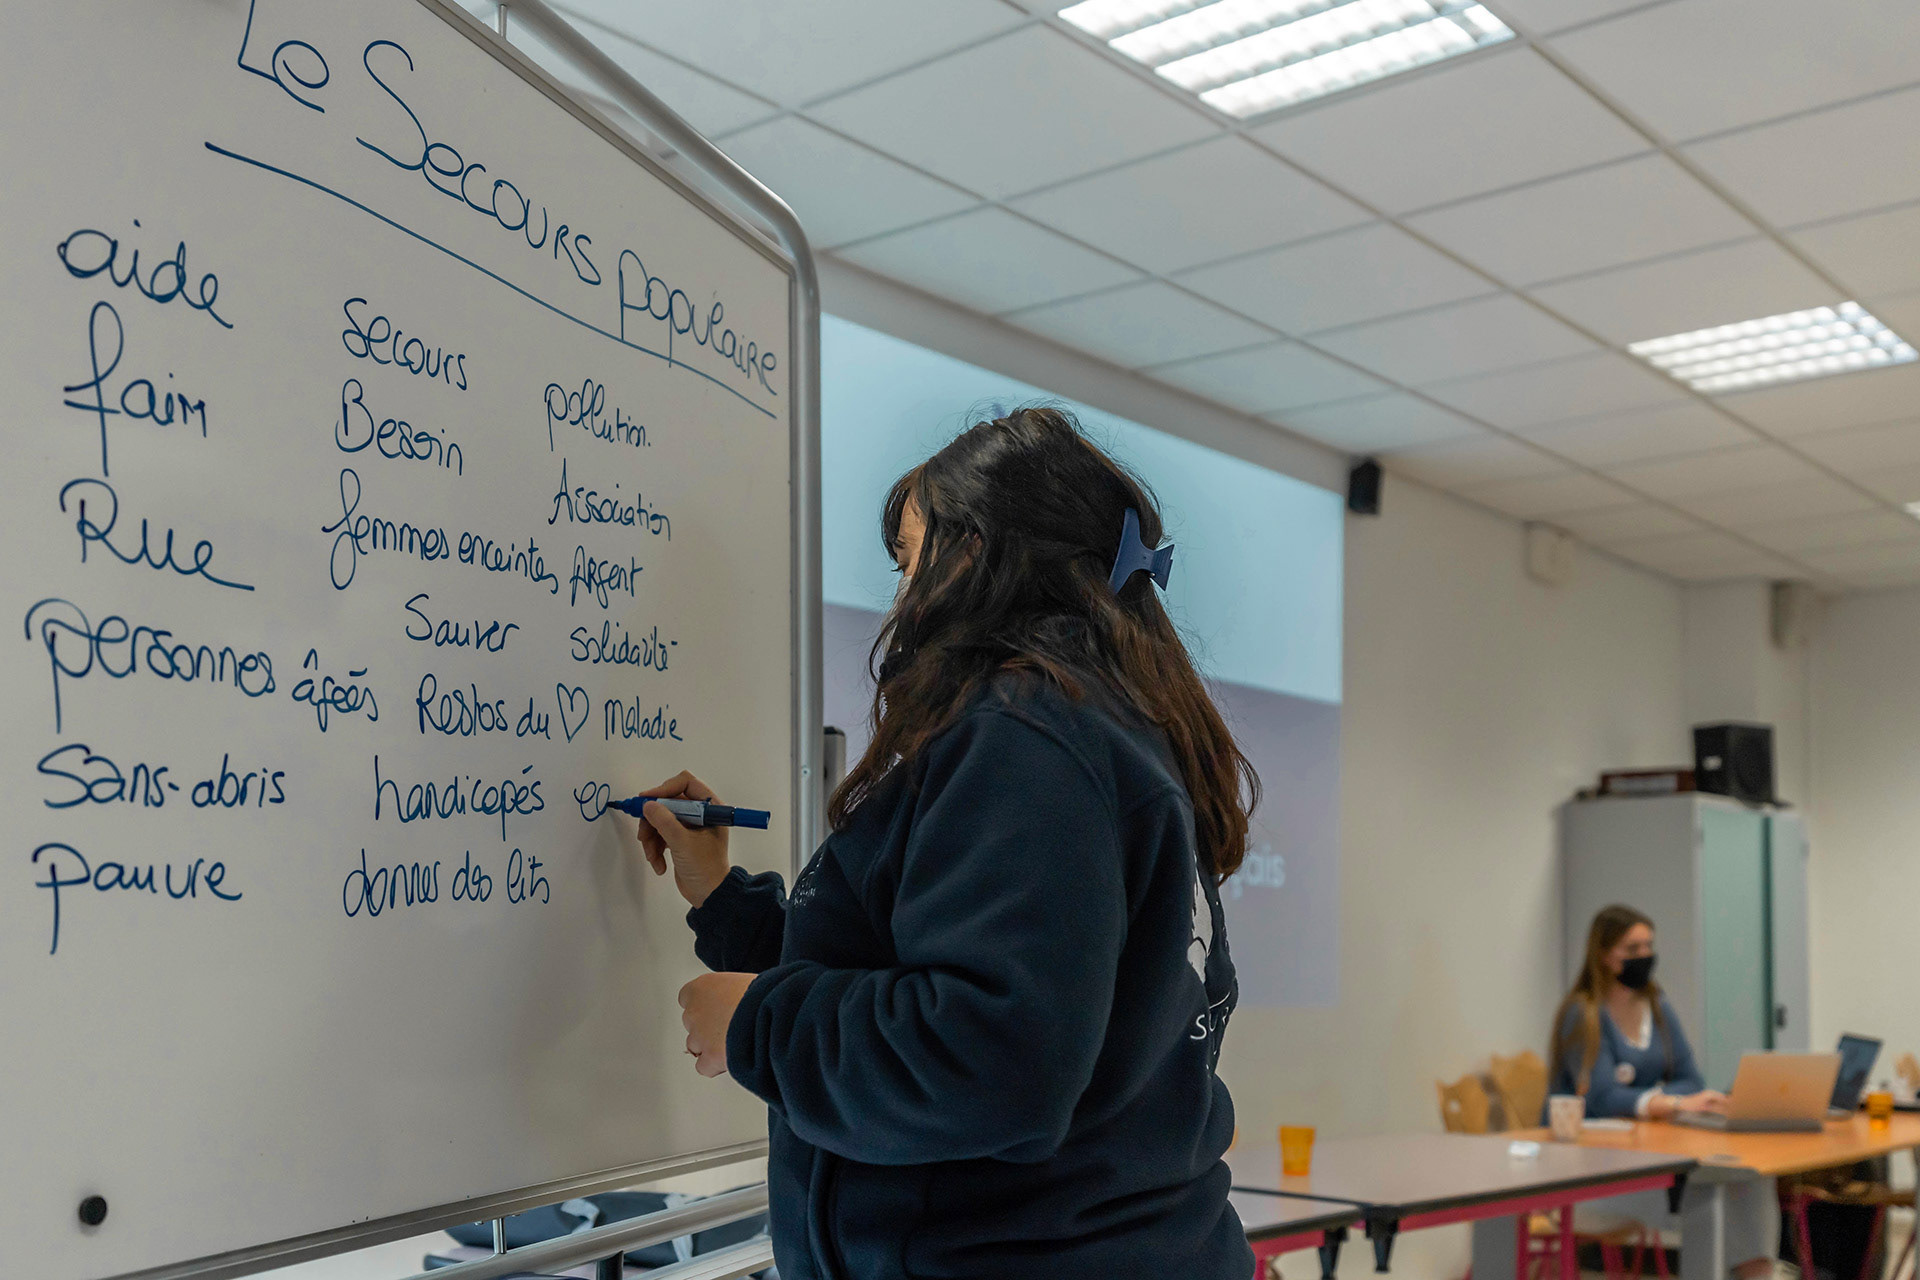 Le Secours populaire
aide
faim
Rue
personnes âgées
Sans-abris
pauvre
secours
Besoin
femmes enceintes
Sauver
Restos du ♡
handicapés
donner des lits
pollution.
Association
Argent
solidarité
maladie